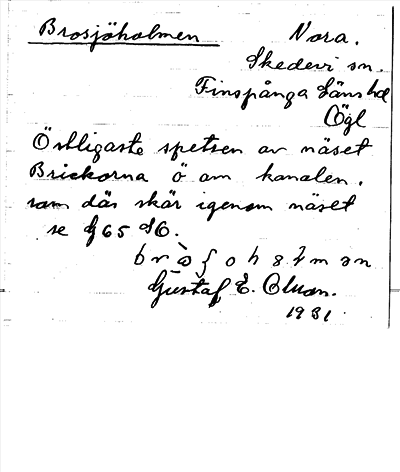 Brosjöholmen Nora.
Skedevi sn.
Finspånga Läns hd
Ögl
Östligaste spetsen av näset
Brickorna ö om kanalen,
som där skär igenom näset
se G65 SO.
Gustaf E. Oluon.
1931